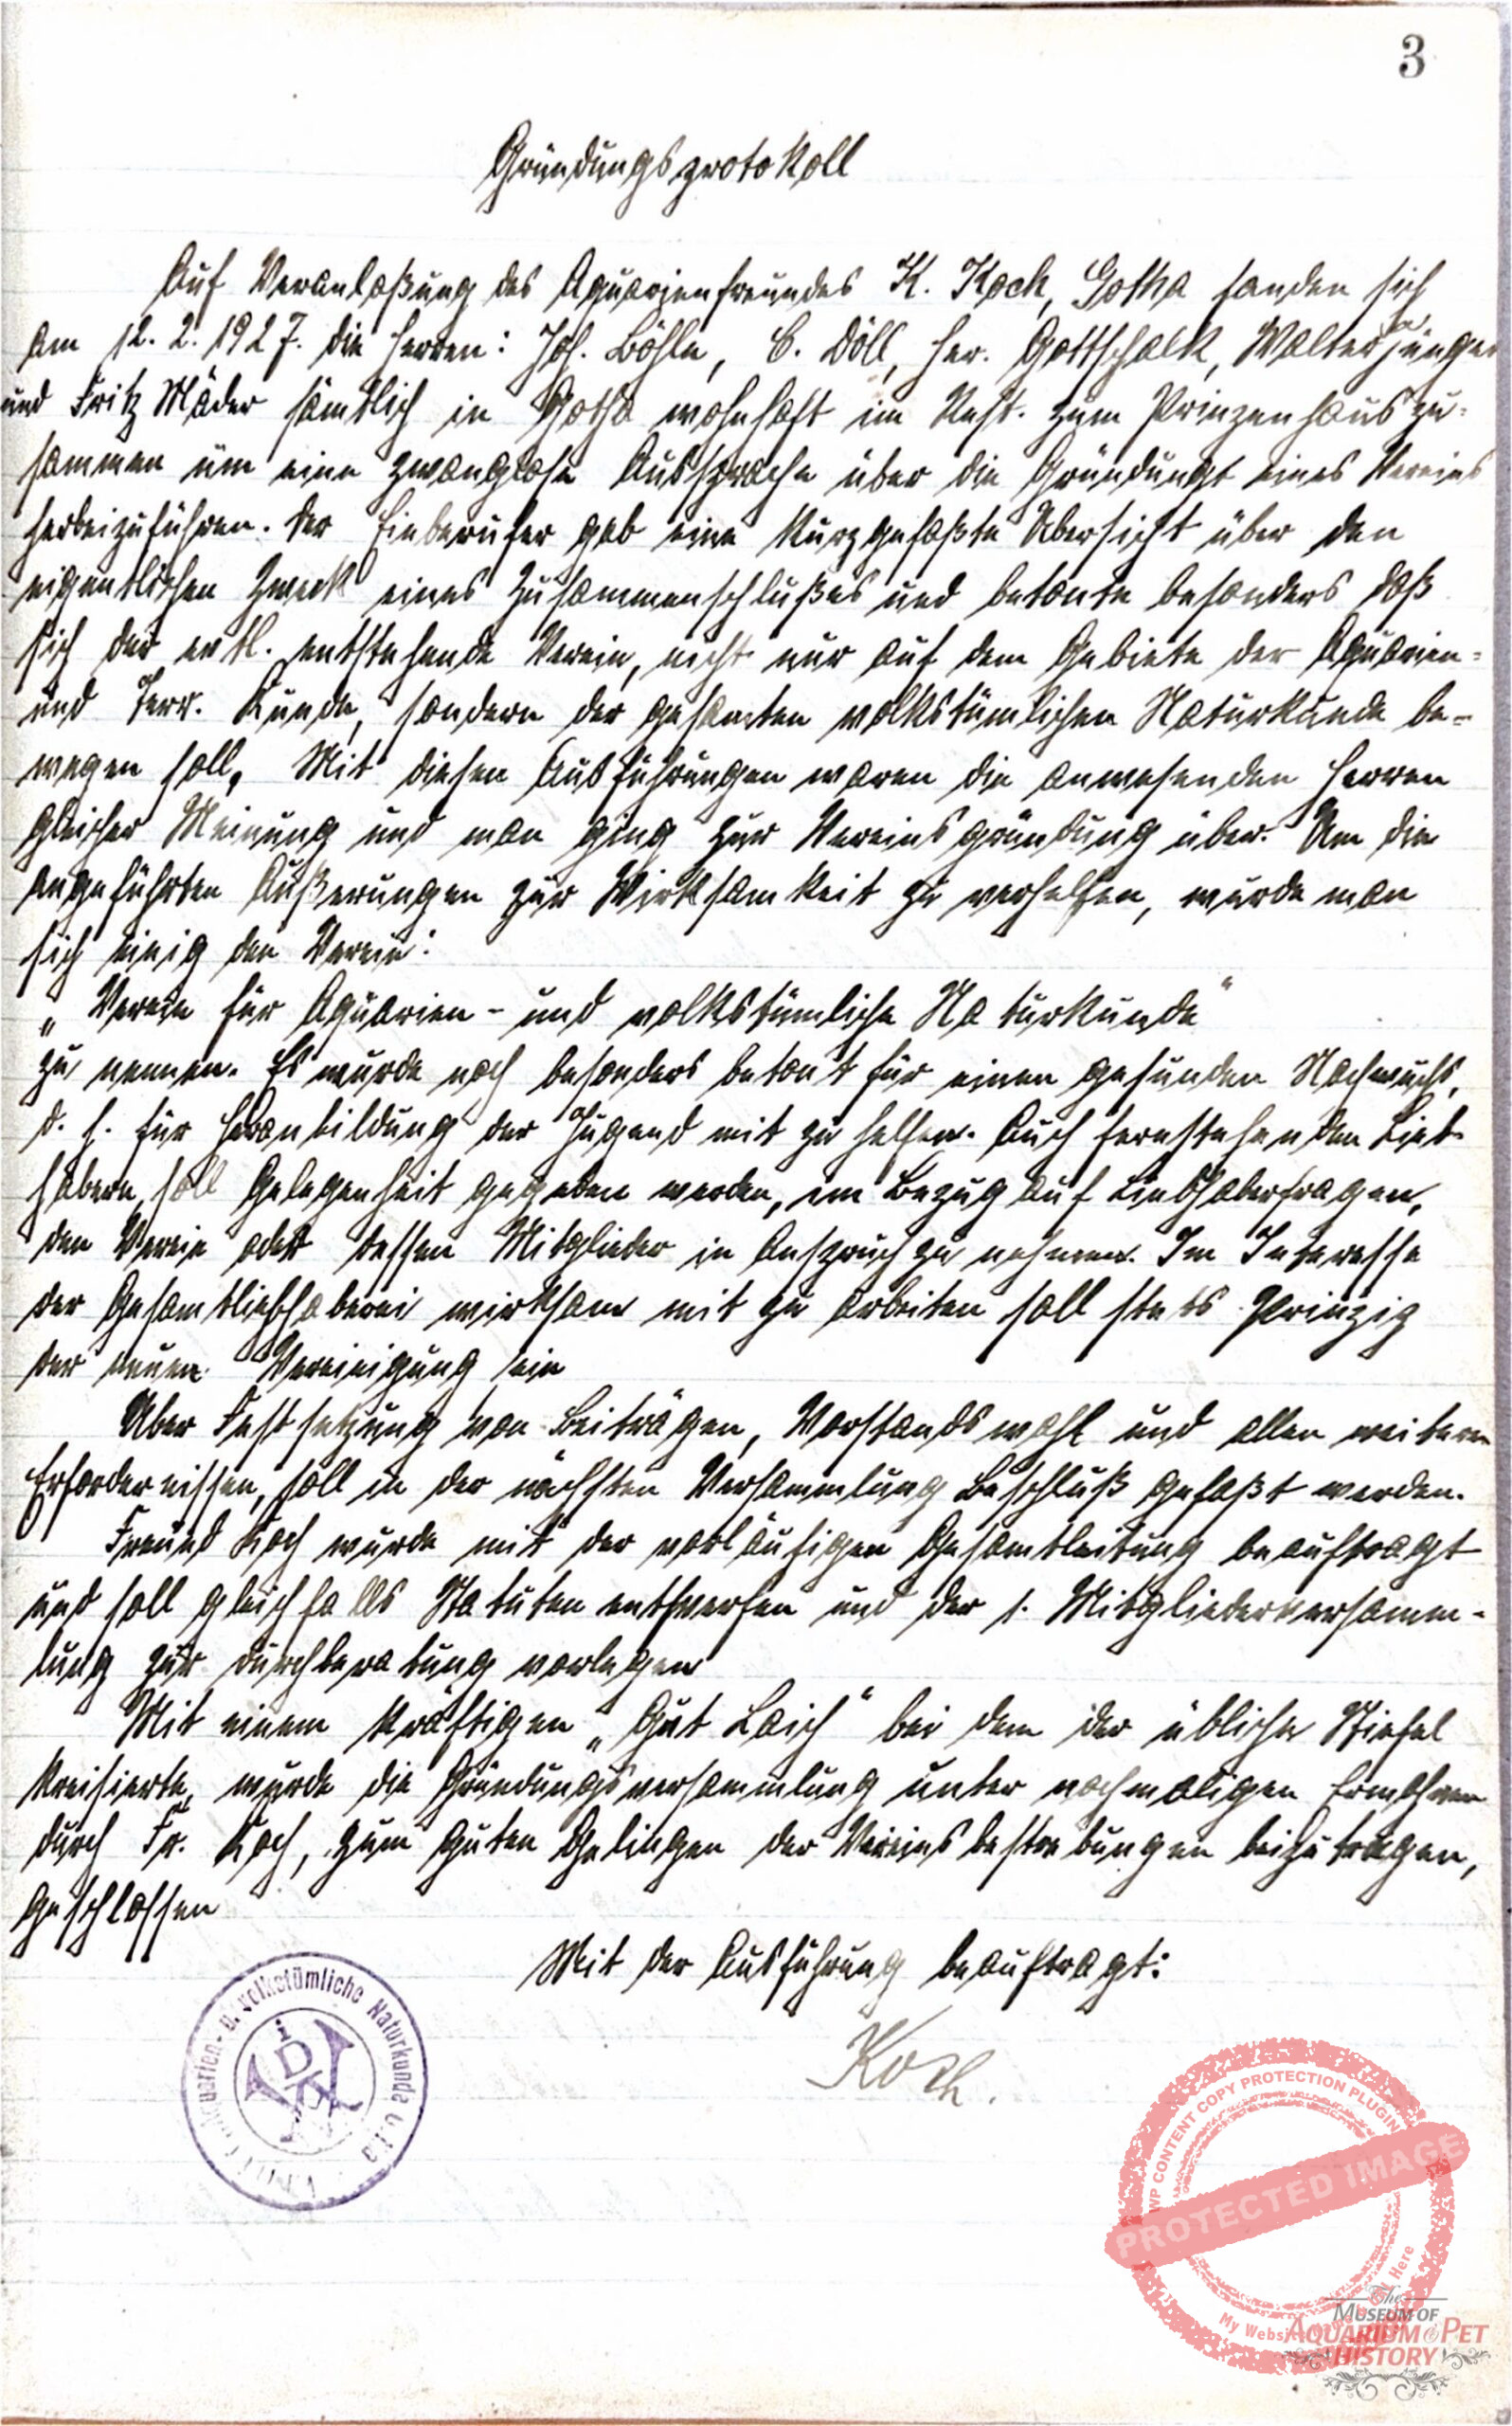 3
Gründungsprotokoll
Auf Veranlaßung des Aquarienfreundes K. Koch, Gotha fanden sich
am 12. 2. 1927. die Herren: Joh. Böhle, C. Döll, Her. Gottschalk, Walter Jünger
und Fritz Mäder sämtlich in Gotha wohnhaft im Rest. zum Prinzenhaus zu=
sammen um eine zwanglose Aussprache über die Gründung eines Vereins
herbeizuführen. Der Einberufer gab eine kurzgefaßte Übersicht über den
eigentlichen Zweck eines Zusammenschlußes und betonte besonders daß
sich der evtl. entstehende Verein, nicht nur auf dem Gebiete der Aquarien=
und Terr. Kunde, sondern der gesamten volkstümlichen Naturkunde be=
wegen soll. Mit diesen Ausführungen waren die anwesenden Herren
gleicher Meinung und man ging zur Vereinsgründung über. Um die
angeführten Äußerungen zur Wirksamkeit zu verhelfen, wurde man
sich einig den Verein:
„Verein für Aquarien- und volkstümliche Naturkunde"
zu nennen. Es wurde noch besonders betont für einen gesunden Nachwuchs,
d. h. für Heranbildung der Jugend mit zu helfen. Auch fernstehenden Lieb-
habern, soll Gelegenheit gegeben werden, im Bezug auf Liebhaberfragen,
den Verein oder dessen Mitglieder in Anspruch zu nehmen. Im Interesse
der Gesamtliebhaberei wirksam mit zu arbeiten soll stets Prinzip
der neuen Vereinigung sein
Über Festsetzung von Beiträgen, Vorstandswahl und allen weiteren
Erfordernissen, soll in der nächsten Versammlung Beschluß gefaßt werden.
Freund Koch wurde mit der vorläufigen Gesamtleitung beauftragt
und soll gleichfalls Statuten entwerfen und der 1. Mitgliederversamm-
lung zur Durchberatung vorlegen
Mit einem kräftigen „Gut Laich" bei dem der übliche Stiefel
kreisierte, wurde die Gründungsversammlung unter nochmaligen Ermahnen
durch Fr. Koch, zum guten Gelingen der Vereinsbestrebungen beizutragen,
geschlossen
Mit der Ausführung beauftragt:
Koch.
Aquarien- u. volkstümliche Naturkunde
WP CONTENT COPY PROTECTION PLUGIN
PROTECTED IMAGE
My Website Here
The
MUSEUM OF
AQUARIUM & PET
HISTORY